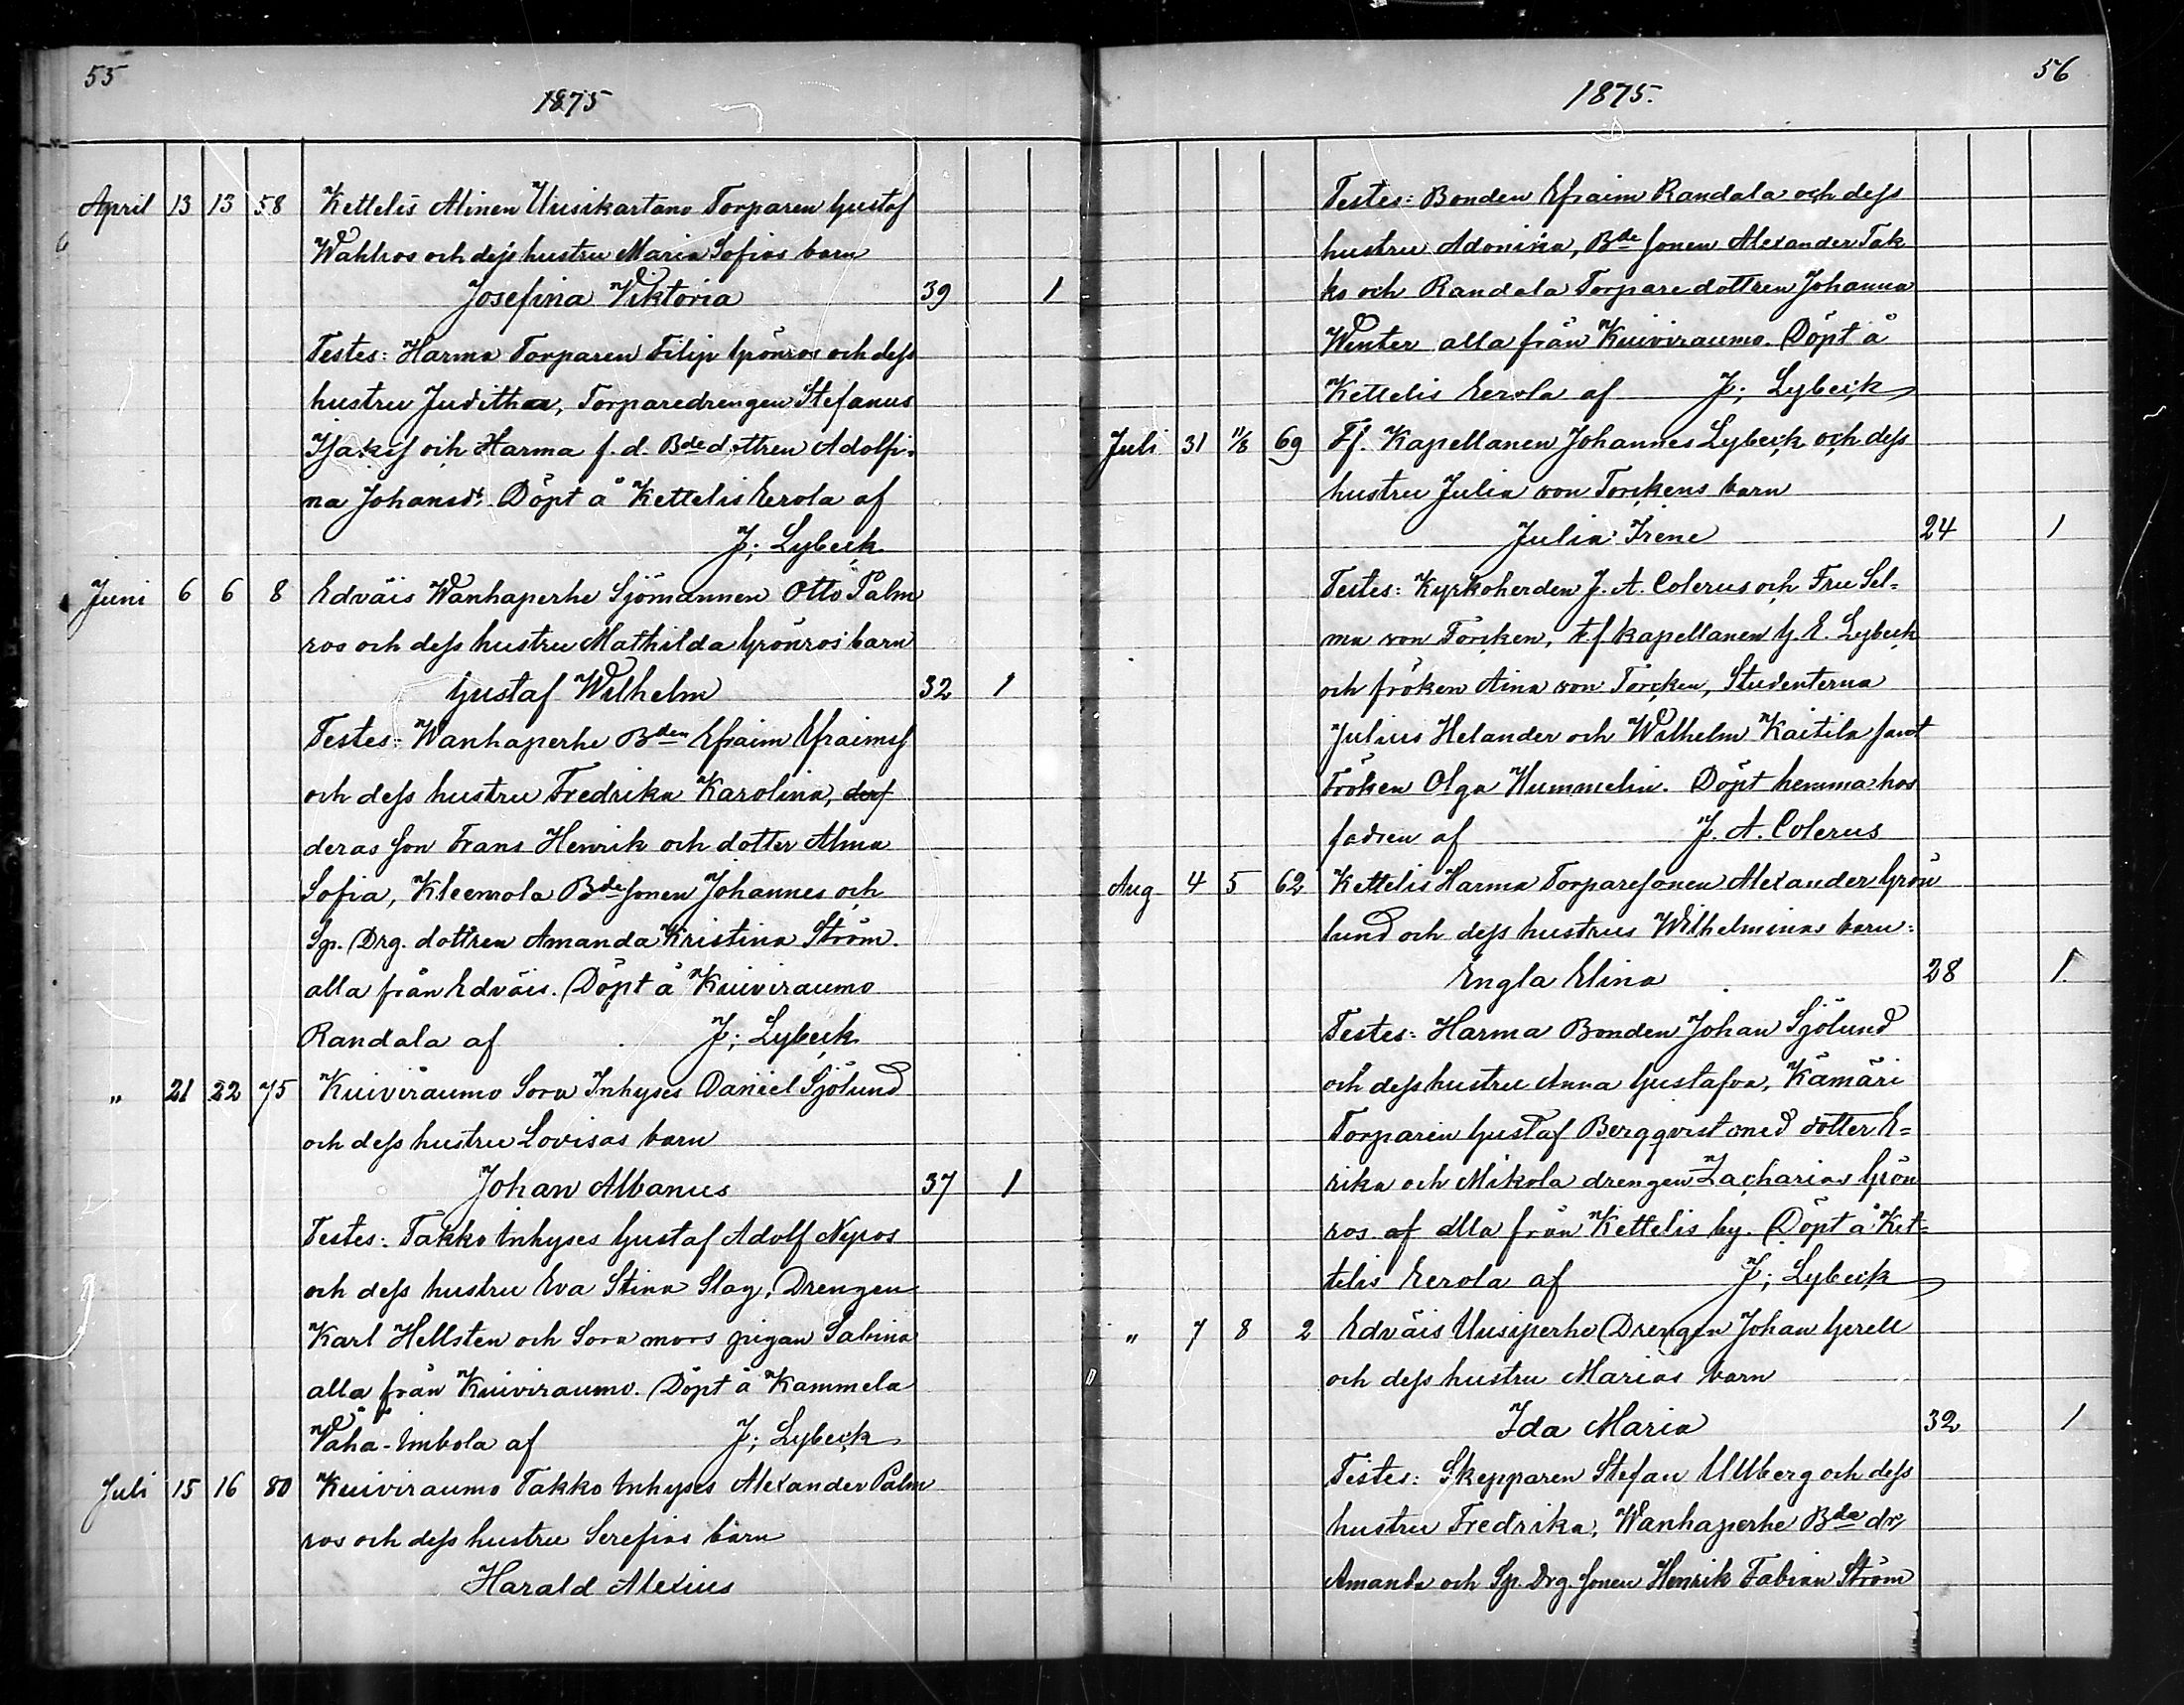 55
1875
April 13 13 58 Kettelis Alinen Uusikartano Torparen Gustaf
Wahlros och dess hustru Maria Sofias barn
Josefina Viktoria 39 1
Testes: Harma Torparen Filip Grönros och dess
hustru Juditha, Torparedrengen Stefanus
Isaks och Harma f. d. Bde dottren Adolfi-
na Johansdr. Döpt å Kettelis Eerola af
J; Lybeck
Juni 6 6 8 Edväis Wanhaperhe Sjömannen Otto Palm
ros och dess hustru Mathilda Grönros barn
Gustaf Wilhelm 32 1
Testes: Wanhaperhe Bden Efraim Efraims
och dess hustru Fredrika Karolina, ders
deras son Frans Henrik och dotter Alma
Sofia, Kleemola Bdesonen Johannes och
Sp. Drg. dottren Amanda Kristina Ström.
alla från Edväis. Döpt å Kuiviraumo
Randala af J; Lybeck
" 21 22 75 Kuiviraumo Sora Inhyses Daniel Sjölund
och dess hustru Lovisas barn
Johan Albanus 37 1
Testes: Takko Inhyses Gustaf Adolf Nyros
och dess hustru Eva Stina Slag, Drengen
Karl Hellsten och Sora mors pigan Sabina
alla från Kuiviraumo. Döpt å Kammela
Vähä-Imbola af J; Lybeck
Juli 15 16 80 Kuiviraumo Takko Inhyses Alexander Palm
ros och dess hustru Serefias barn
Harald Alexius
56
1875.
Testes: Bonden Efraim Randala och dess
hustru Adonika, Bde sonen Alexander Tak
ko och Randala Torparedottren Johanna
Winter alla från Kuiviraumo. Döpt å
Kettelis Eerola af J; Lybeck
Juli 31 11/8 69 Tf. Kapellanen Johannes Lybeck och dess
hustru Julia von Torckens barn
Julia Irene 24 1
Testes: Kyrkoherden J. A. Colerus och Fru Sel-
ma von Torcken, tf kapellanen G. E. Lybeck
och fröken Aina von Torcken, Studenterna
Julius Helander och Wilhelm Kaitila samt
Fröken Olga Hummelin. Döpt hemma hos
fadren af J. A. Colerus
Aug 4 5 62 Kettelis Harma Torparesonen Alexander Grön
lund och dess hustrus Wilhelminas barn:
Engla Elina 28 1.
Testes: Harma Bonden Johan Sjölund
och dess hustru Anna Gustafva, Kämäri
Torparen Gustaf Bergqvist med dotter E-
rika och Mikola drengen Zacharias Grön
ros af alla från Kettelis by. Döpt å Ket-
telis Eerola af J; Lybeck
" 7 8 2 Edväis Uusiperhe Drengen Johan Gerell
och dess hustru Marias barn
Ida Maria 32 1
Testes: Skepparen Stefan Ullberg och dess
hustru Fredrika, Wanhaperhe Bde dr,
Amanda och Sp. Drg. sonen Henrik Fabian Ström